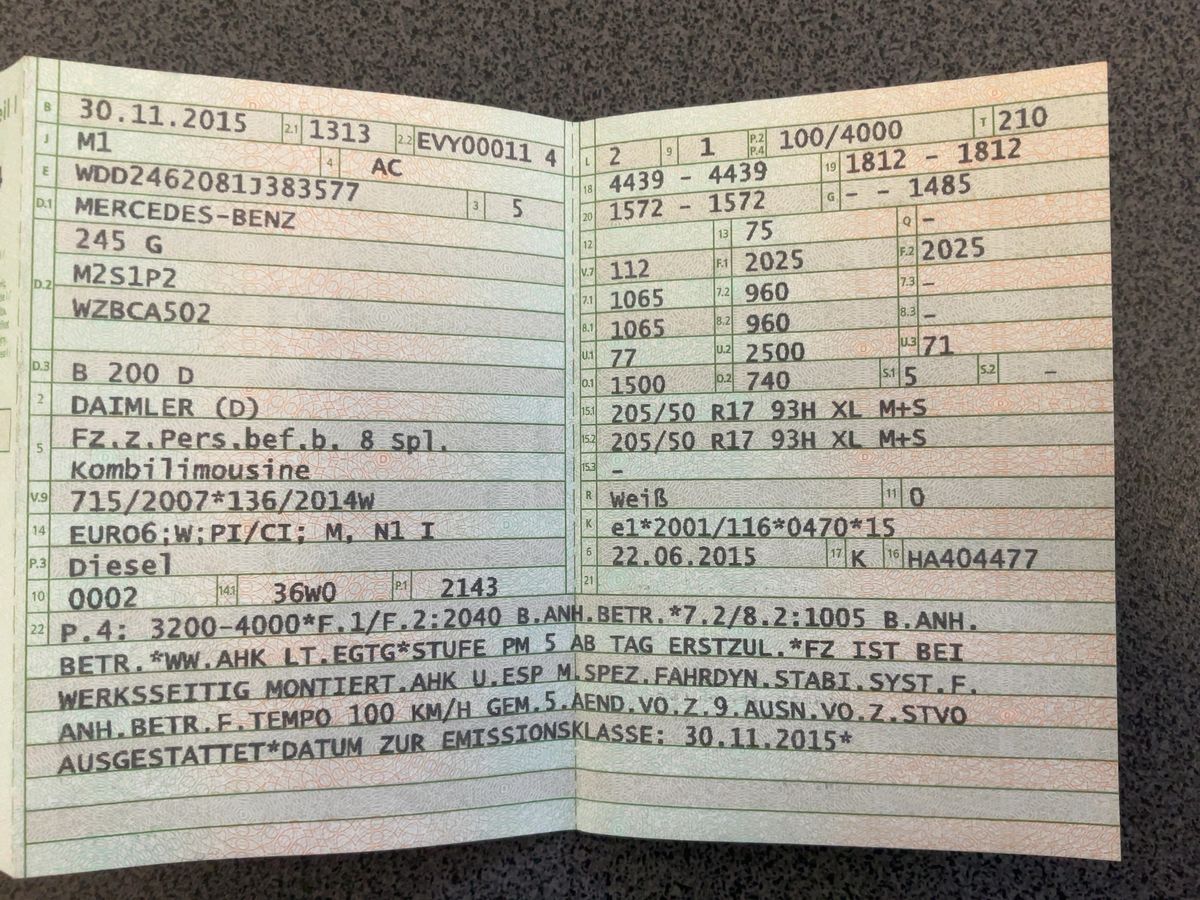 B 30.11.2015 2.1 1313 2.2 EVY00011 4
J M1 4 AC
E WDD2462081J383577 3 5
D.1 MERCEDES-BENZ
D.2 245 G
M2S1P2
WZBCA502
D.3 B 200 D
2 DAIMLER (D)
5 Fz.z.Pers.bef.b. 8 Spl.
Kombilimousine
V.9 715/2007*136/2014W
14 EURO6;W;PI/CI; M, N1 I
P.3 Diesel
10 0002 14.1 36W0 P.1 2143
L 2 9 1 P.2 P.4 100/4000 T 210
18 4439 - 4439 19 1812 - 1812
20 1572 - 1572 G - - 1485
12 13 75 Q -
V.7 112 F.1 2025 F.2 2025
7.1 1065 7.2 960 7.3 -
8.1 1065 8.2 960 8.3 -
U.1 77 U.2 2500 U.3 71
O.1 1500 O.2 740 S.1 5 S.2 -
15.1 205/50 R17 93H XL M+S
15.2 205/50 R17 93H XL M+S
15.3 -
R weiß 11 0
K e1*2001/116*0470*15
6 22.06.2015 17 K 16 HA404477
21
22 P.4: 3200-4000*F.1/F.2:2040 B.ANH.BETR.*7.2/8.2:1005 B.ANH.
BETR.*WW.AHK LT.EGTG*STUFE PM 5 AB TAG ERSTZUL.*FZ IST BEI
WERKSSEITIG MONTIERT.AHK U.ESP M.SPEZ.FAHRDYN.STABI.SYST.F.
ANH.BETR.F.TEMPO 100 KM/H GEM.5.AEND.VO.Z.9.AUSN.VO.Z.STVO
AUSGESTATTET*DATUM ZUR EMISSIONSKLASSE: 30.11.2015*